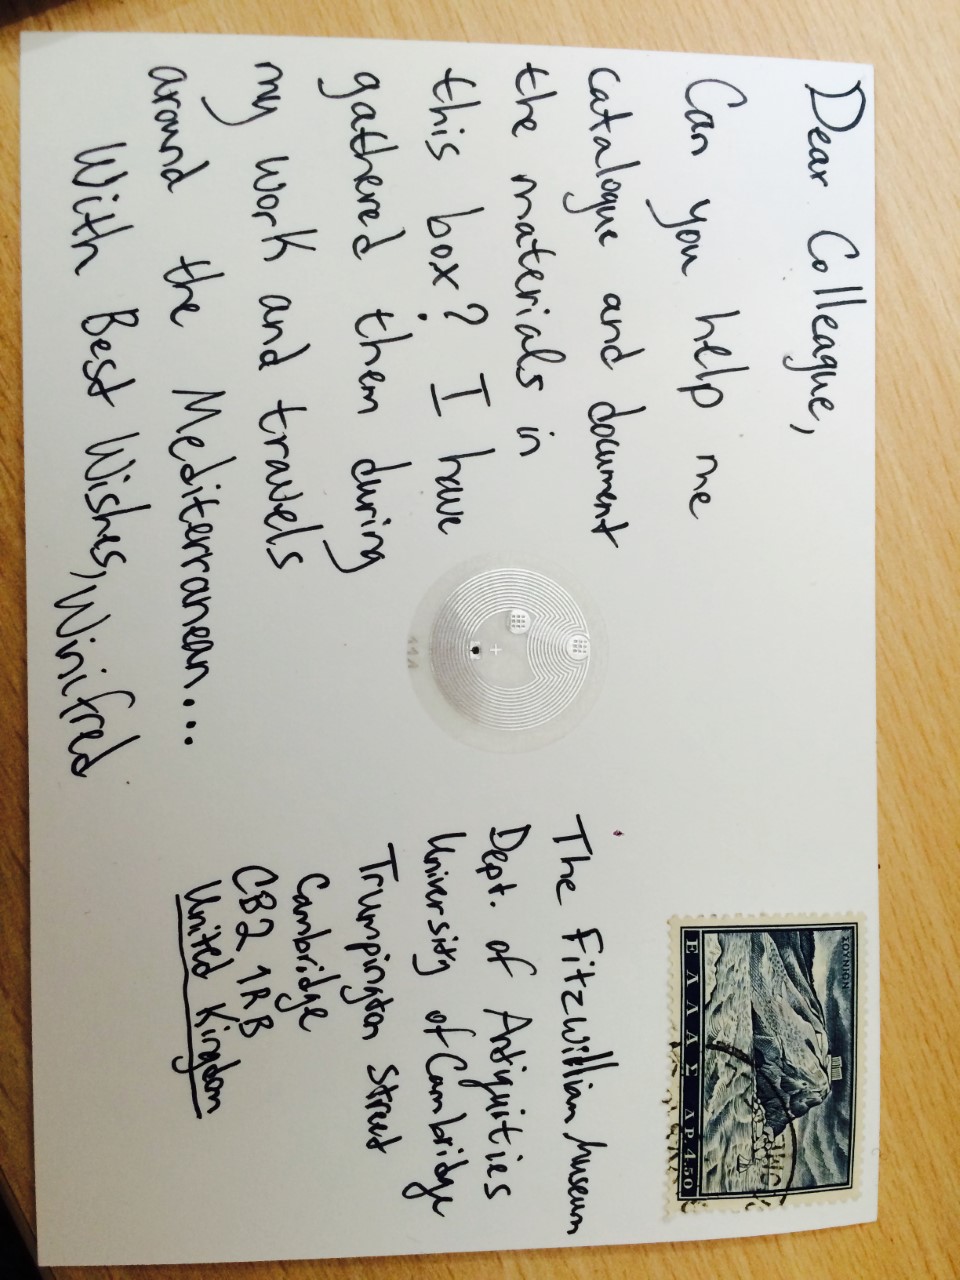 Dear Colleague,
Can you help me
catalogue and document
the materials in
this box? I have
gathered them during
my work and travels
around the Mediterranean...
With Best Wishes, Winifred
ΣΟΥΝΙΟΝ
ΕΛΛΑΣ ΔΡ. 4.50
The Fitzwilliam Museum
Dept. of Antiquities
University of Cambridge
Trumpington Street
Cambridge
CB2 1RB
United Kingdom